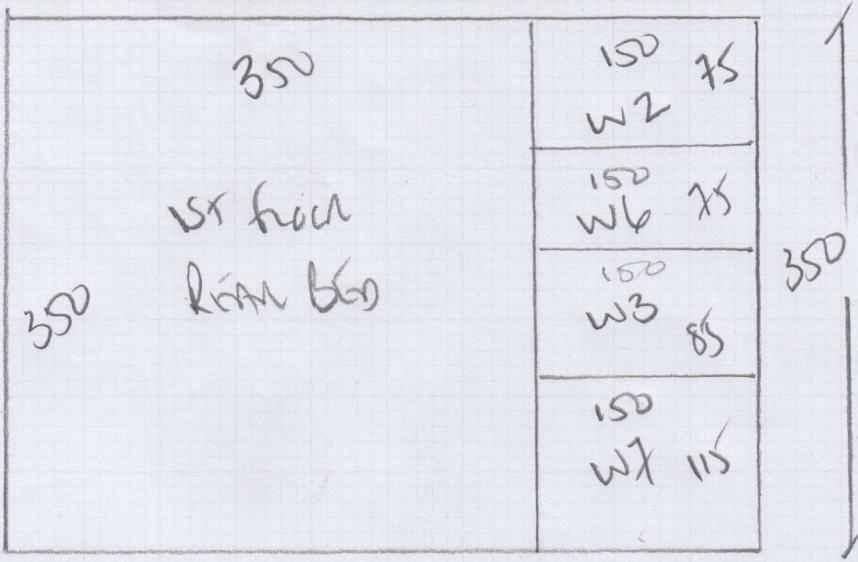 350
1ST FLOOR
REAR BED
350
150
75
W2
150
W6 75
150
W3
85
150
W7 115
350